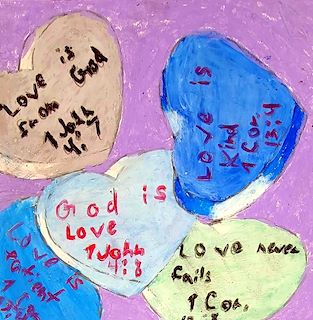 Love is
from God
1 John
4:7
Love is
Kind
1 Cor.
13:4
God is
Love
1 John
4:8
Love is
patient
Love never
fails
1 Cor.